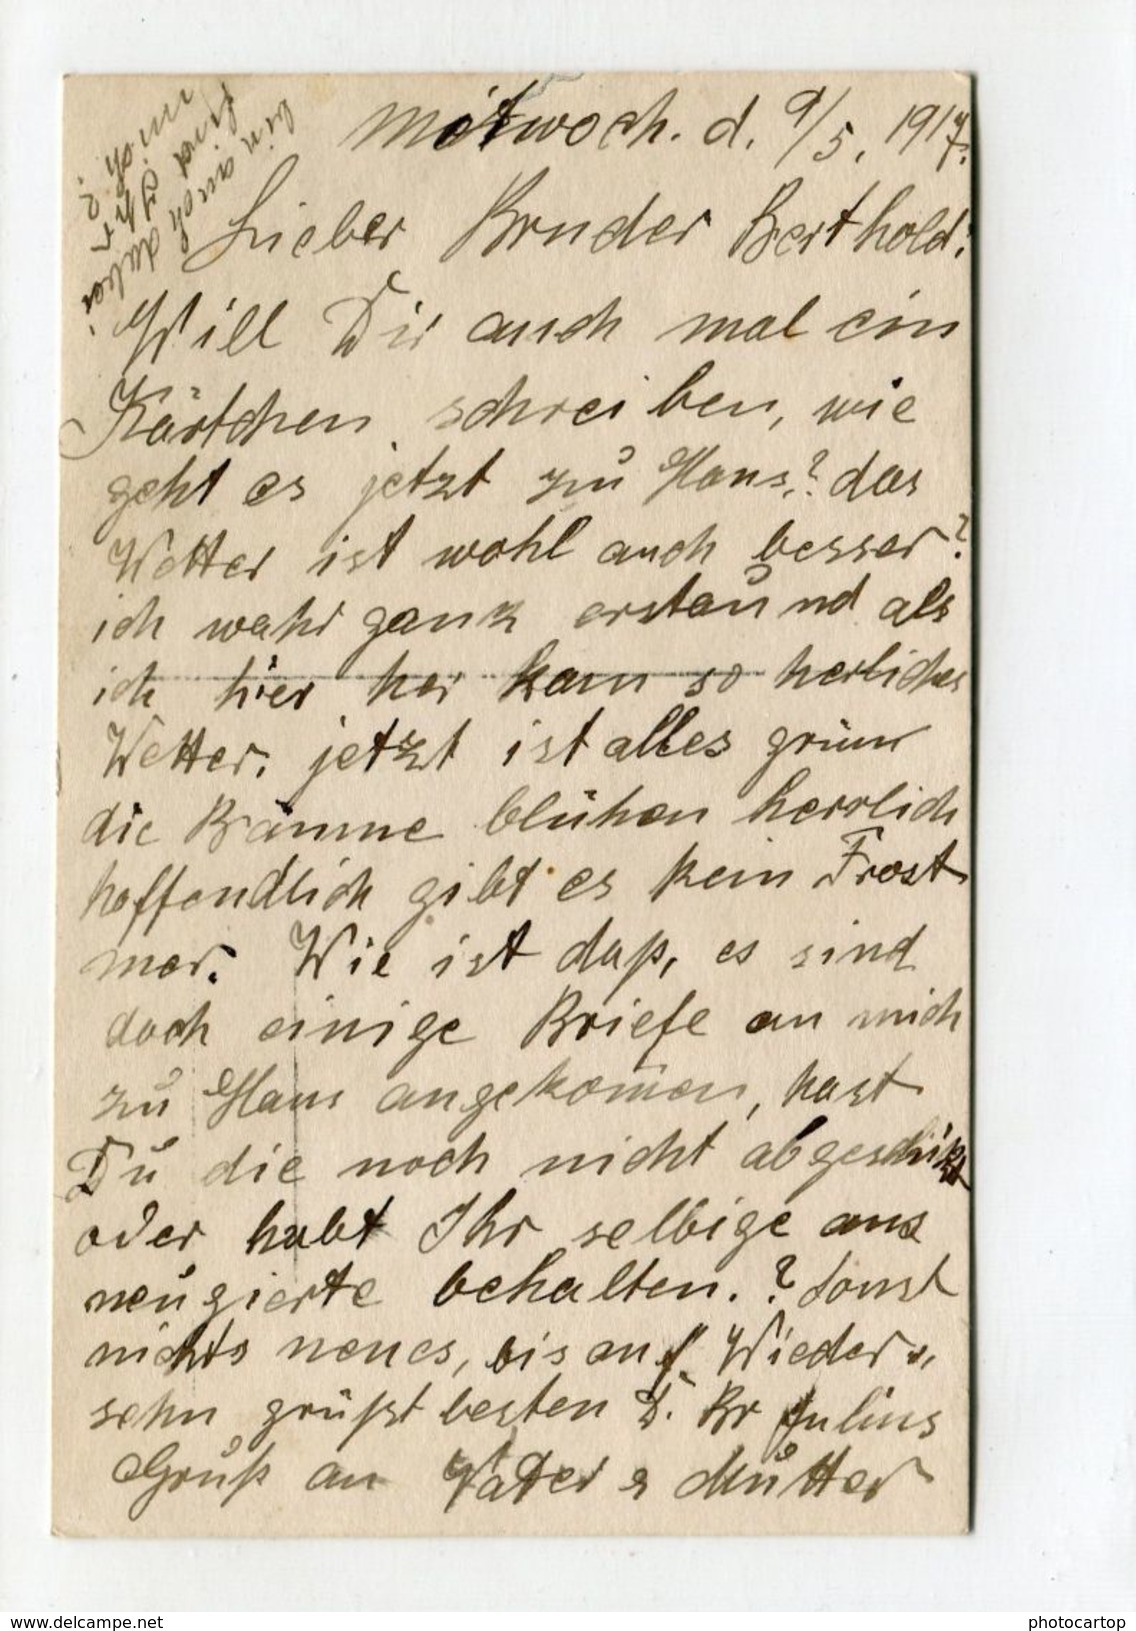 Mitwoch. d. 9/5. 1917.
Lieber Bruder Berthold!
Will Dir auch mal ein
Kärtchen schreiben, wie
geht es jetzt zu Haus,? das
Wetter ist wohl auch besser?
ich wahr gank erstaund als
ich hier her kam so herliches
Wetter. jetzt ist alles grün
die Bäume blühen herrlich
hoffendlich gibt es kein Frost
mer. Wie ist daß, es sind
doch einige Briefe an mich
zu Haus angekom̄en, hast
Du die noch nicht abgeschikt
oder habt Ihr selbige aus
neugierte behalten.? sonst
nichts neues, bis auf Wieder,,
sehn grüßt besten D. Br Julius
Gruß an Vater & Mutter
bin auch dabei
find Ihr
mich?
delcampe.net
photocartop